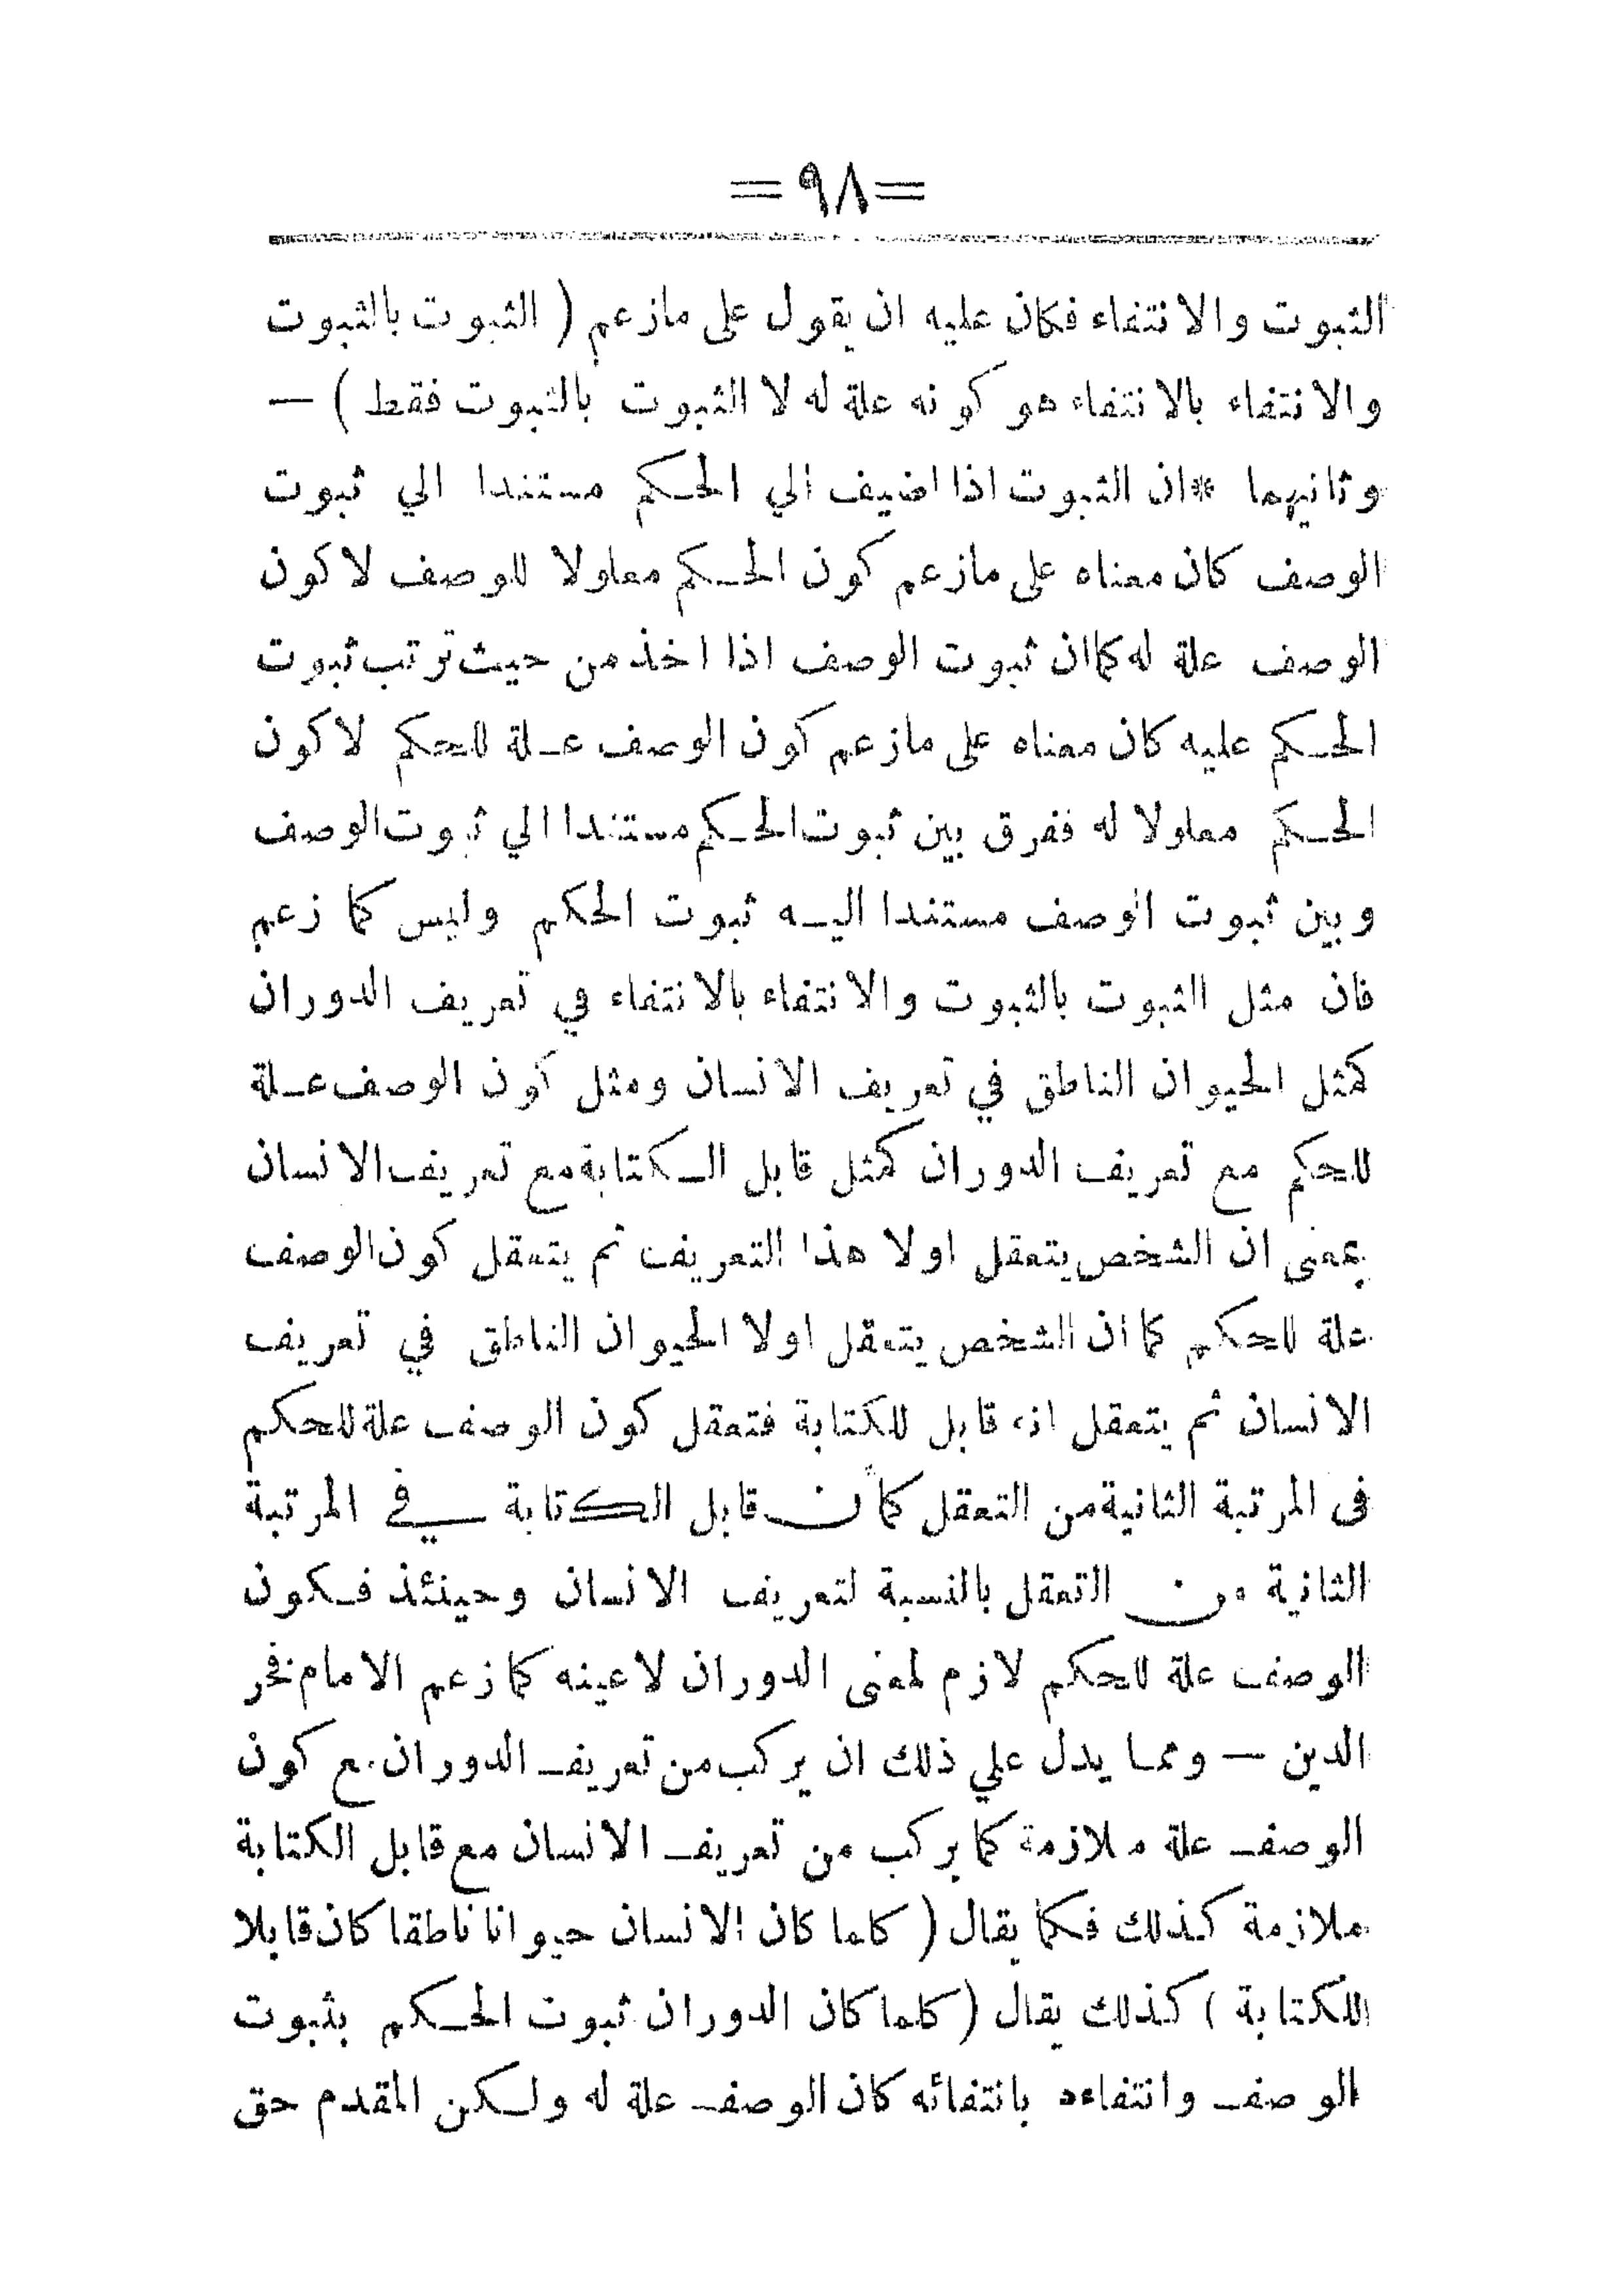 =٩٨=
الثبوت والانتفاء فكان عليه ان يقول على مازعم ( الثبوت بالثبوت
والانتفاء بالانتفاء هو كونه علة له لا الثبوت بالثبوت فقط ) —
وثانيهما *ان الثبوت اذا اضيف الي الحكم مستندا الي ثبوت
الوصف كان معناه على مازعم كون الحكم معلولا للوصف لا كون
الوصف علة له كما ان ثبوت الوصف اذا اخذ من حيث ترتب ثبوت
الحكم عليه كان معناه على مازعم كون الوصف علة للحكم لا كون
الحكم معلولا له ففرق بين ثبوت الحكم مستندا الي ثبوت الوصف
وبين ثبوت الوصف مستندا اليه ثبوت الحكم وليس كما زعم
فان مثل الثبوت بالثبوت والانتفاء بالانتفاء في تعريف الدوران
كمثل الحيوان الناطق في تعريف الانسان ومثل كون الوصف علة
للحكم مع تعريف الدوران كمثل قابل الكتابة مع تعريف الانسان
بمعنى ان الشخص يتعقل اولا هذا التعريف ثم يتعقل كون الوصف
علة للحكم كما ان الشخص يتعقل اولا الحيوان الناطق في تعريف
الانسان ثم يتعقل انه قابل للكتابة فتعقل كون الوصف علة للحكم
فى المرتبة الثانية من التعقل كما ان قابل الكتابة في المرتبة
الثانية من التعقل بالنسبة لتعريف الانسان وحينئذ فكون
الوصف علة للحكم لازم لمعنى الدوران لا عينه كما زعم الامام فخر
الدين — ومما يدل علي ذلك ان يركب من تعريف الدوران مع كون
الوصف علة ملازمة كما يركب من تعريف الانسان مع قابل الكتابة
ملازمة كذلك فكما يقال ( كلما كان الانسان حيوانا ناطقا كان قابلا
للكتابة ) كذلك يقال ( كلما كان الدوران ثبوت الحكم بثبوت
الوصف وانتفاءه بانتفائه كان الوصف علة له ولكن المقدم حق